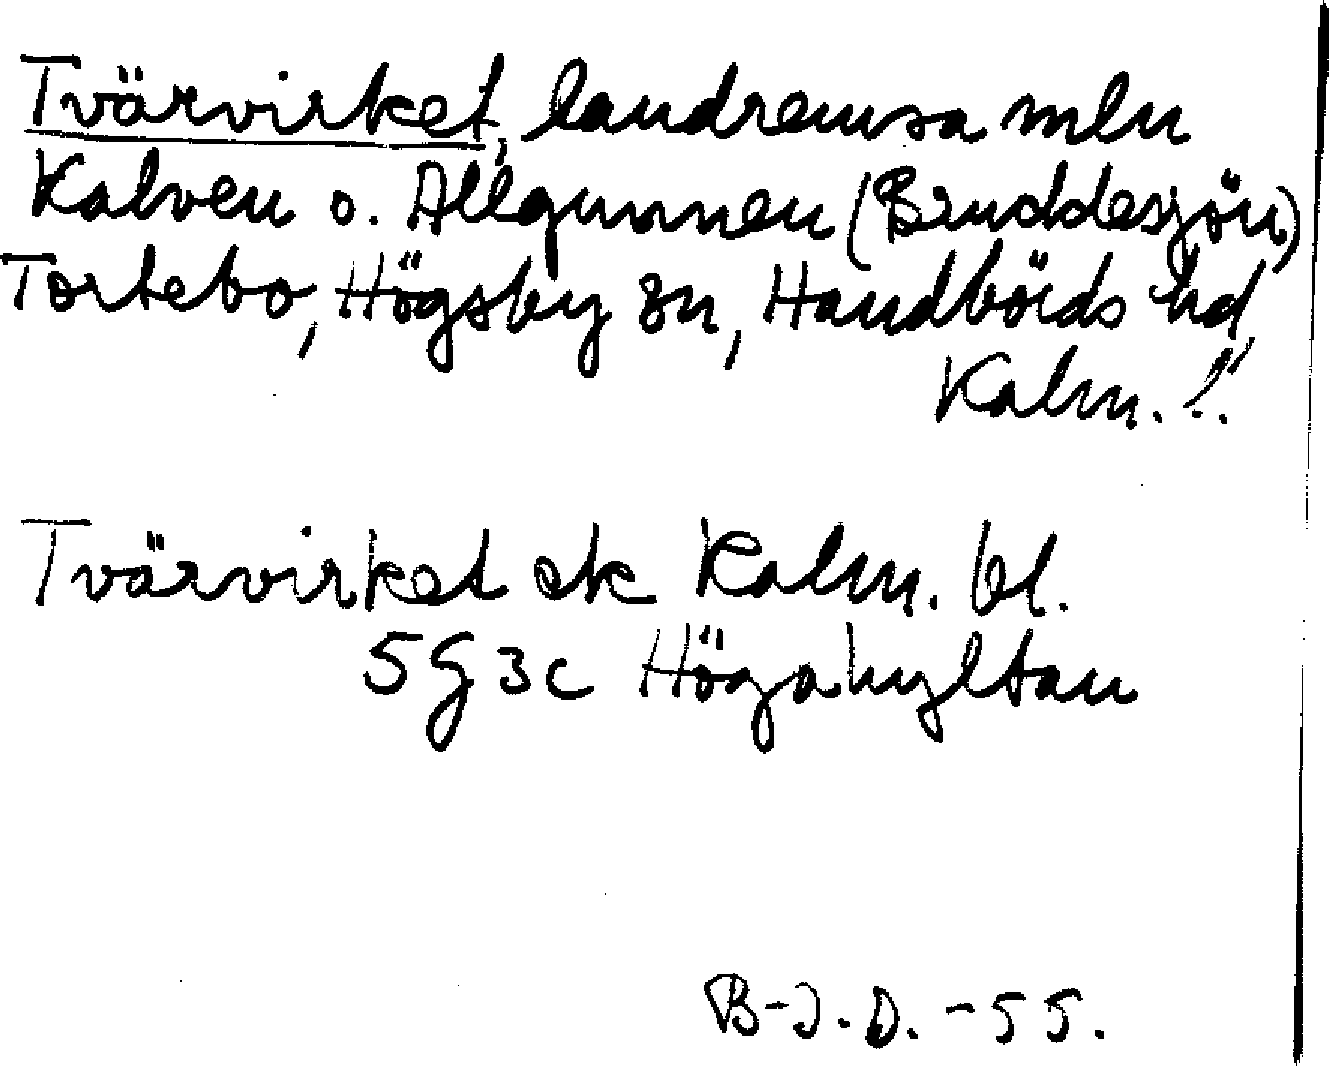 Tvärvirket, landremsa mln
Kalven o. Allgunnen (Bruddesjön)
Tortebo, Högsby sn, Handbörds hd
Kalm. l.
Tvärvirket ek Kalm. bl.
5G3c Högahyltan
B-J.D. -55.